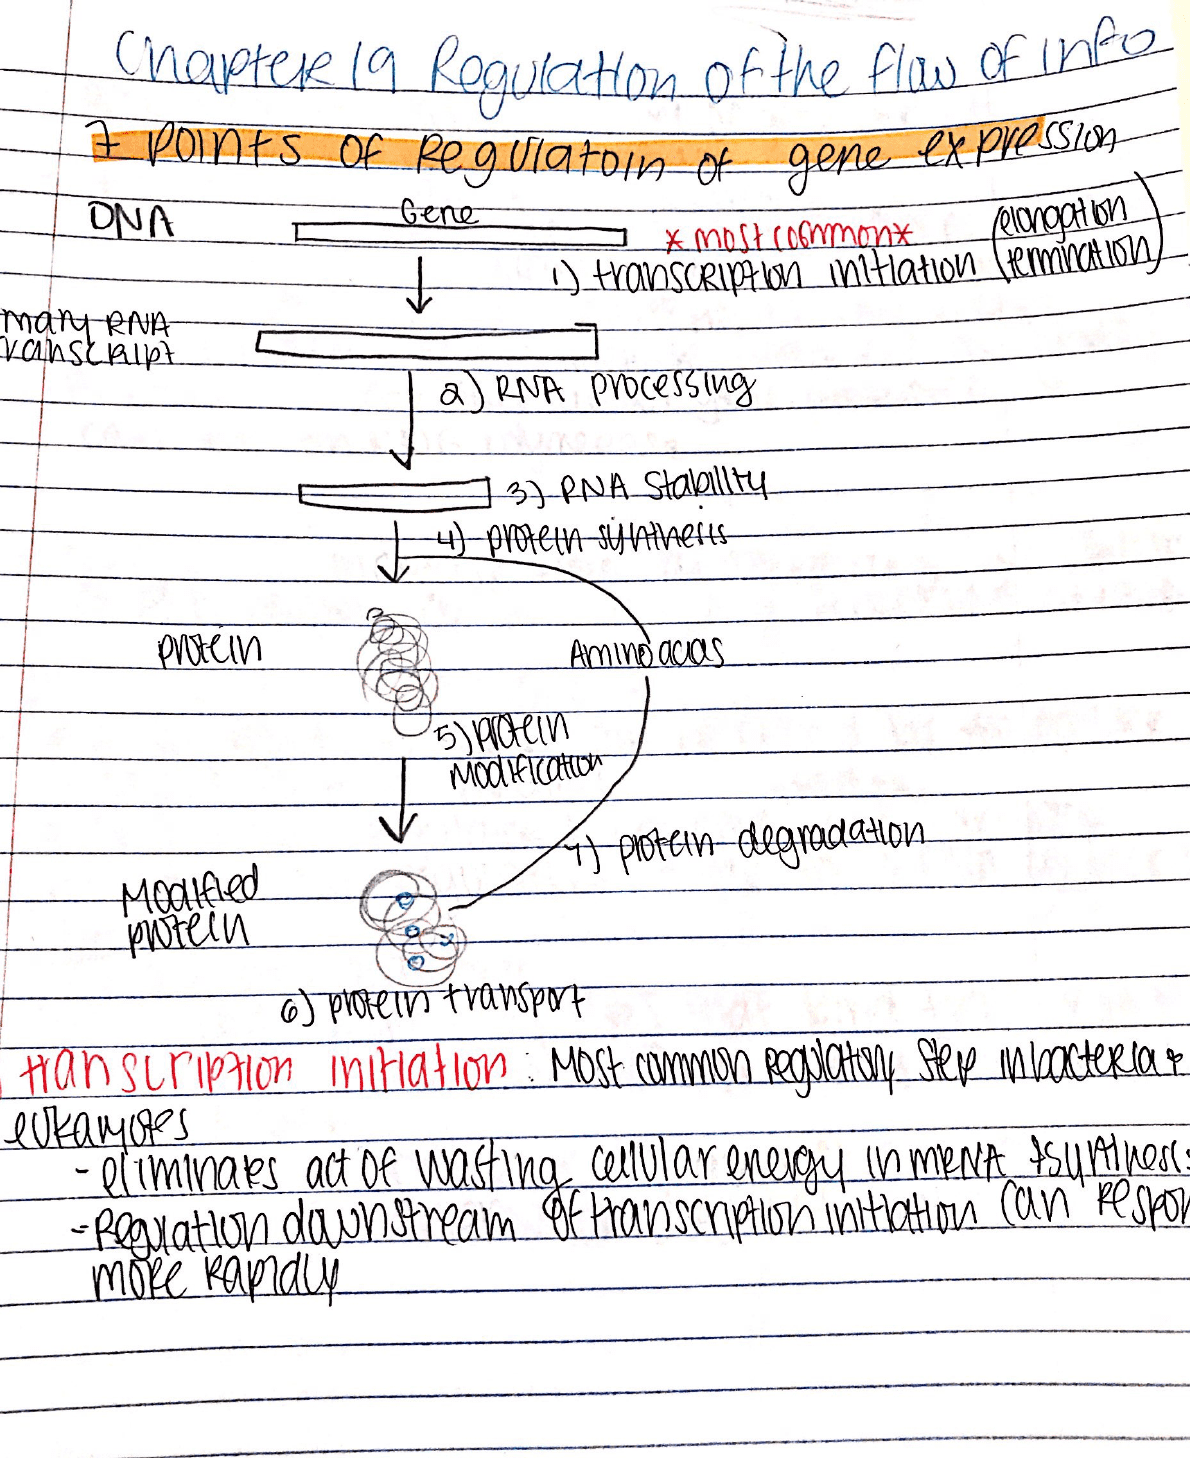 Chapter 19 Regulation of the flow of info
7 points of Regulatoin of gene expression
DNA
Gene
*most common*
(elongation
termination)
1) transcription initiation
mary RNA
ranscript
2) RNA processing
3) RNA Stability
4) protein synthesis
protein
Amino acids
5) protein
Modification
7) protein degradation
Modified
protein
6) protein transport
transcription initiation: Most common regulatory step in bacteria +
eukaryotes
- eliminates act of wasting cellular energy in mRNA synthesis
- Regulation downstream of transcription initiation can respon
more rapidly